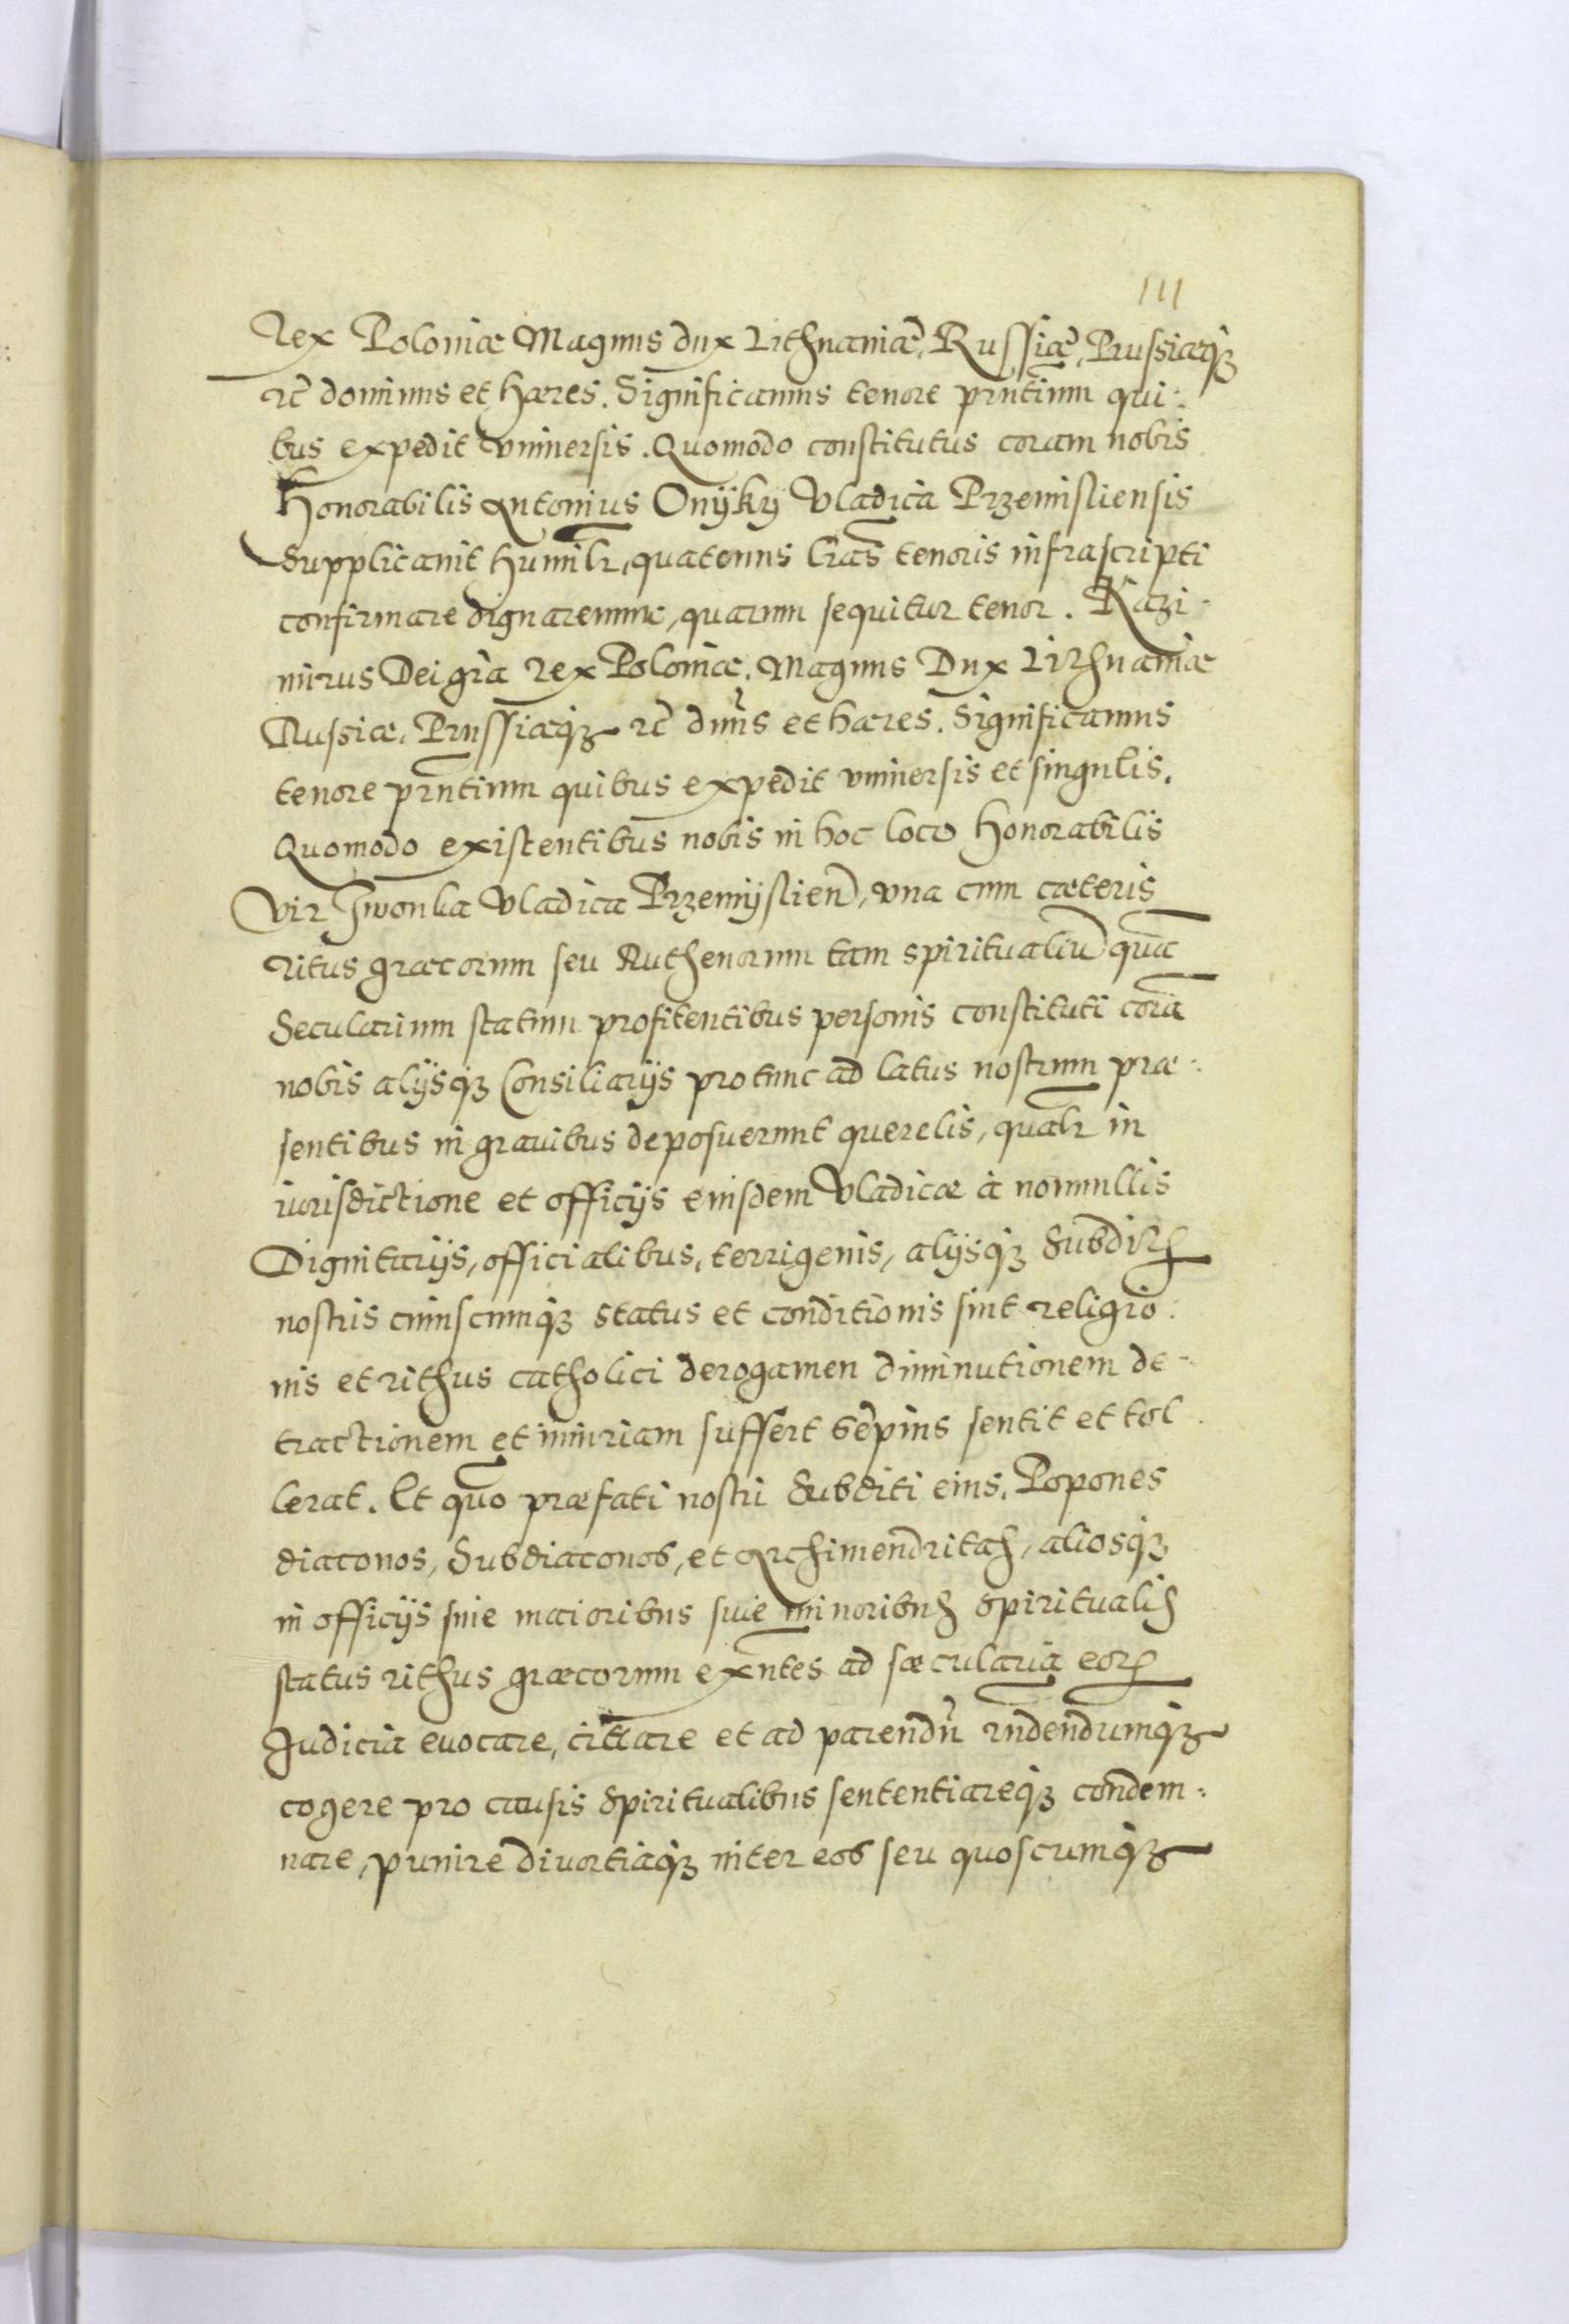 111
Rex Poloniæ Magnus dux Lithuaniæ, Russiæ, Prussiæq3
rc̃ dominus et hæres. Significamus tenore prñtium qui:
bus expedit vniuersis. Quomodo constitutus coram nobis
Honorabilis Antonius Onÿkÿ Vladica Przemisliensis
Supplicauit humilr̃, quatenus lr̃as tenoris infrascripti
confirmare dignaremur, quarum sequitur tenor. Kazi-
mirus Dei gr̃a Rex Poloniæ. Magnus Dux Lithuaniæ
Russiæ, Prussiæq3 rc̃ dnũs et hæres. Significamus
tenore prñtium quibus expedit vniuersis et singulis.
Quomodo existentibus nobis in hoc loco Honorabilis
Vir Iwonka Vladica Przemÿslieñ, vna cum cæteris
ritus græcorum seu Ruthenorum tam spiritualiũ quã
Secularium statum profitentibus personis constituti corã
nobis alÿsq3 Consiliarÿs pro tunc ad latus nostrum præ:
sentibus in grauibus deposuerunt querelis, qualr̃ in
iurisdictione et officÿs eiusdem Vladicæ à nonnullis
Dignitarÿs, officialibus, terrigenis, alÿsq3 Subdits
nostris cuiuscumq3 status et conditionis sint religio:
nis et rithus catholici derogamen diminutionem de-
tractionem et iniuriam suffert sæpius sentit et tol
lerat. Et quõ præfati nostri Subditi eius, Popones
diaconos, Subdiaconos, et Archimendritas, aliosq3
in officÿs siue maioribus siue minoribus spiritualis
status rithus græcorum exñtes ad sæcularia eorꝝ
Judicia euocare, cittare et ad parendũ rñdendumq3
cogere pro causis spiritualibus sententiareq3 condem:
nare, punire diuortiaq3 inter eos seu quoscumq3